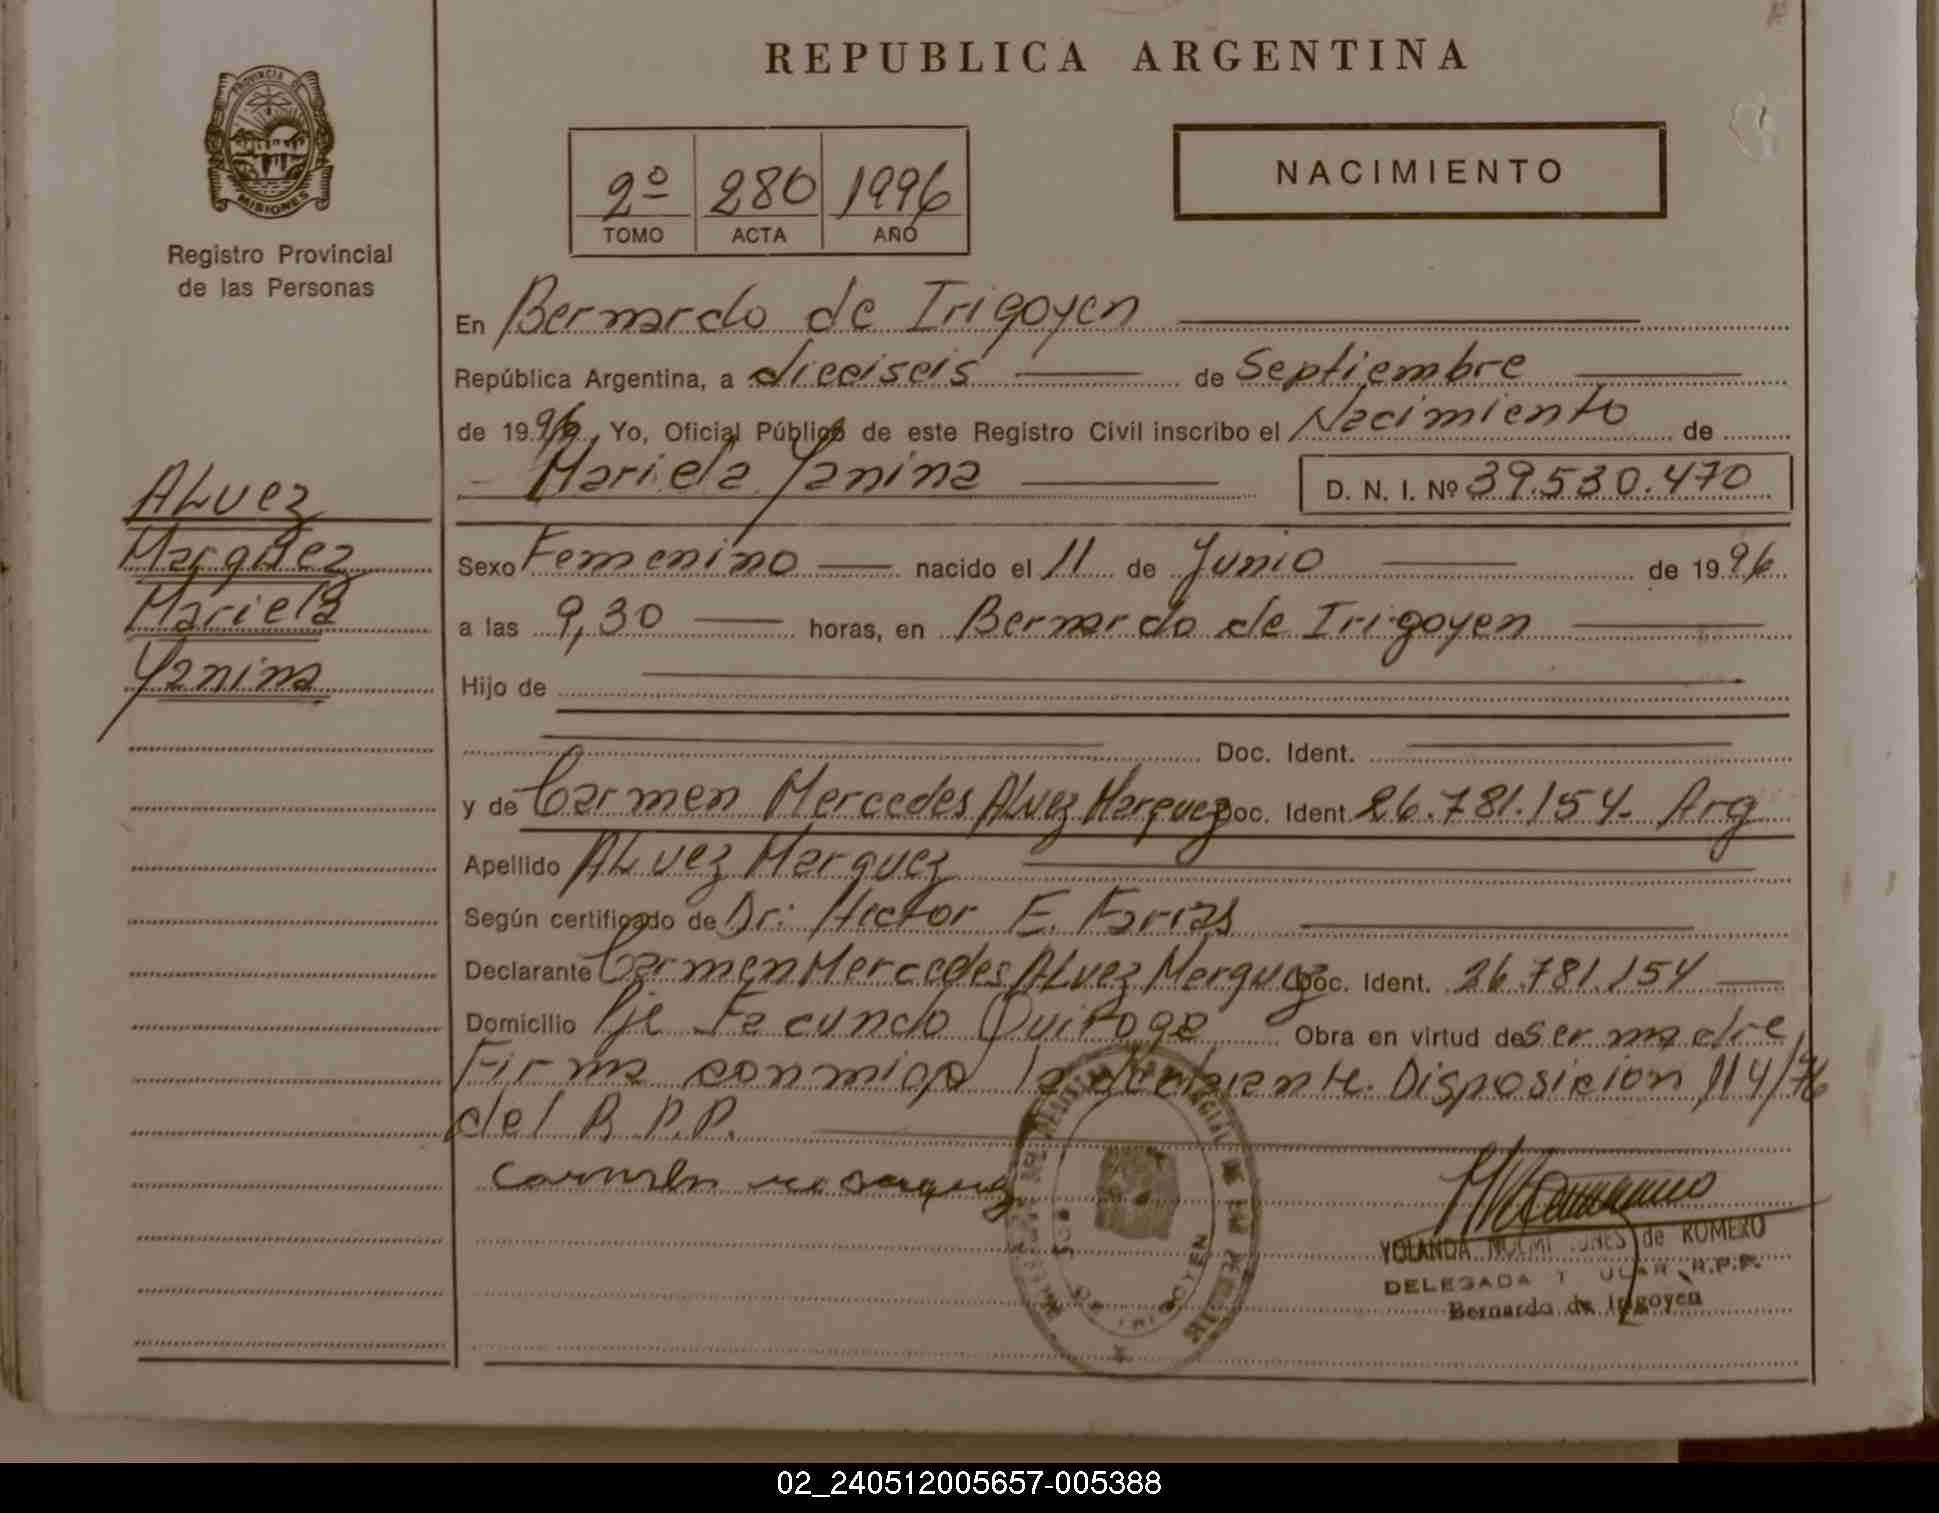 REPUBLICA ARGENTINA
PROVINCIA DE
MISIONES
Registro Provincial
de las Personas
2º 280 1996
TOMO ACTA AÑO
NACIMIENTO
En Bernardo de Irigoyen
República Argentina, a dieciseis de Septiembre
de 1996, Yo, Oficial Público de este Registro Civil inscribo el Nacimiento de
Mariela Yanina D. N. I. Nº 39.530.470
ALvez
Marquez
Mariela
Yanina
Sexo Femenino nacido el 11 de Junio de 1996
a las 9,30 horas, en Bernardo de Irigoyen
Hijo de
Doc. Ident.
y de Carmen Mercedes ALvez Marquez Doc. Ident. 26.781.154- Arg
Apellido ALvez Marquez
Según certificado de Dr: Hector E. Farias
Declarante Carmen Mercedes ALvez Marquez Doc. Ident. 26.781.154
Domicilio Pje Facundo Quiroga Obra en virtud de ser madre
Firma conmigo la declarante. Disposicion 114/76
del R.P.P.
YOLANDA de ROMERO
DELEGADA R.P.P.
Bernardo de Irigoyen
02_240512005657-005388